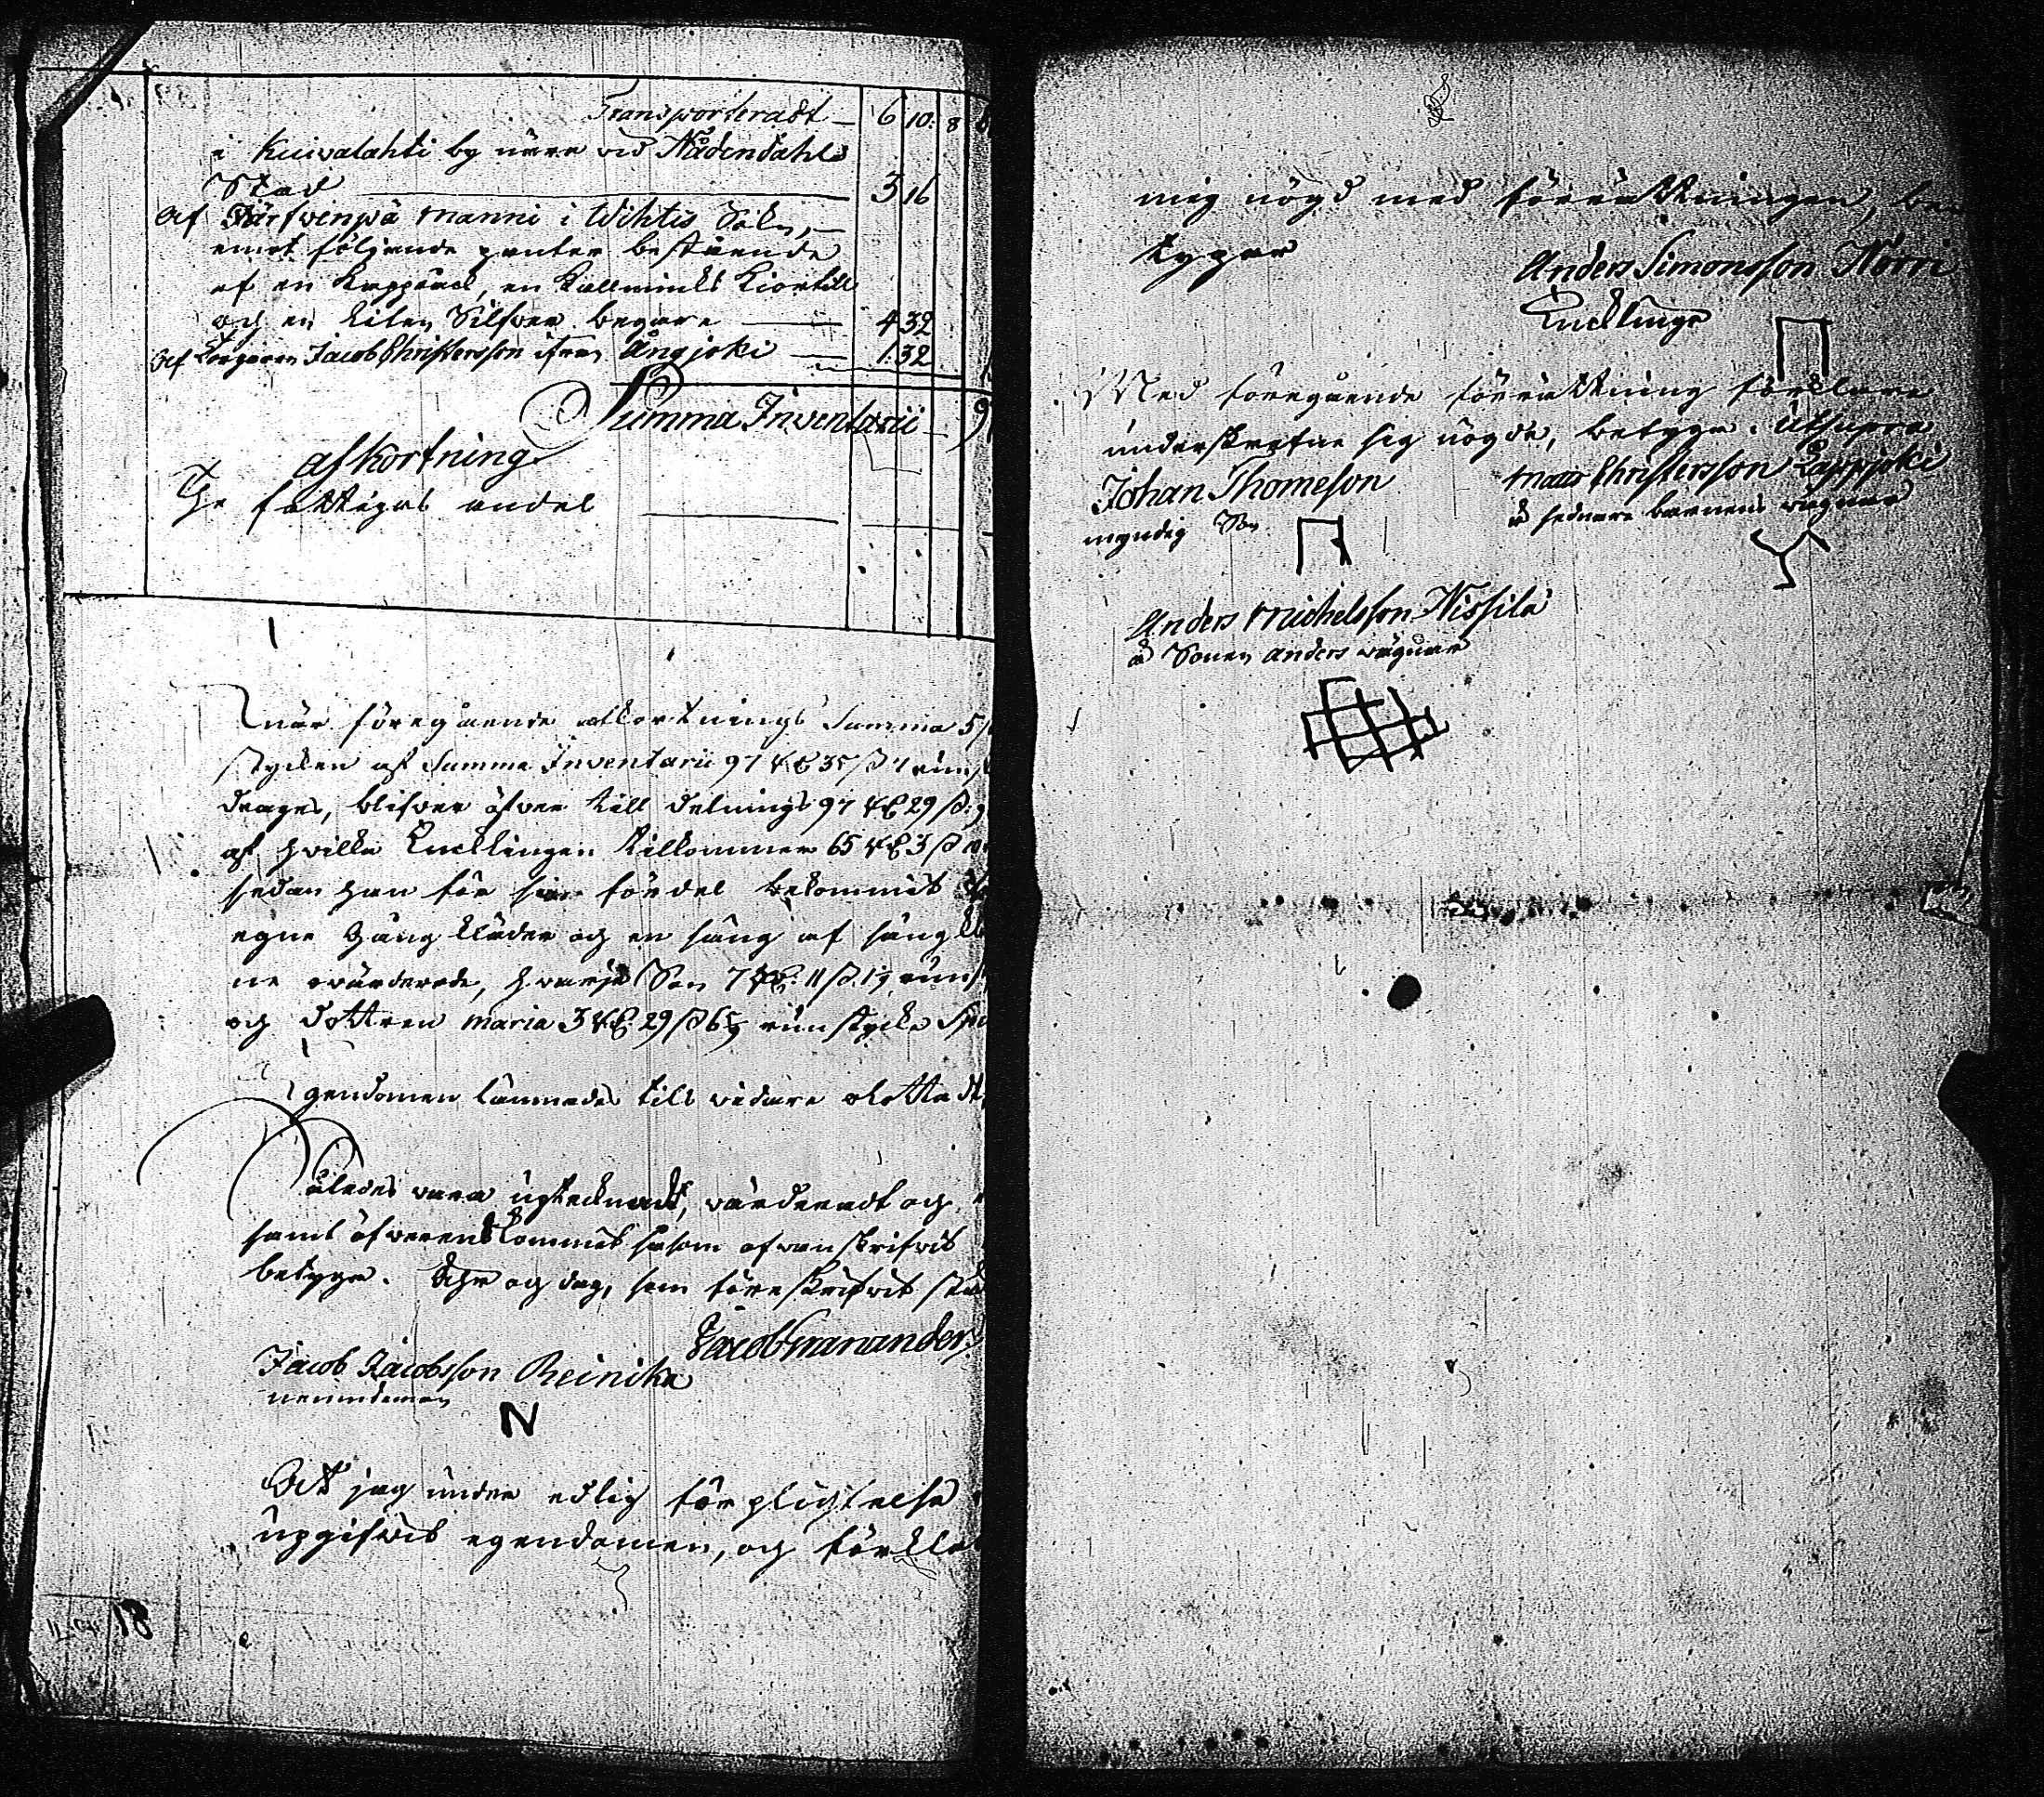 Transporteradt — 6 10: 8
i Kuivalahti by nära vid Nådendahls
Stad — 3 16
af Järfvenpä Manni i Wihtis Sokn,
emot följande panter bestående
af en Kappräck, en Kallmincks Kiortill
och en liten Silfver begare — 4 32
Af Torparen Jacob Christersson ifrån Ångjoki — 1:32
Summa Inventarii — 9
afkortning
The fattigas andel
När föregående afkortnings Summa 5
stycken af Summa Inventarii 97 35 4 runst
drages, blifver öfver till delnings 97 29 9
af hvilka Encklingen tillkommer 65 3
sedan han för sin fördel bekommit
egne Gång kläder och en säng af sängklä
ne värderade, hvarje Son 7 11
och dottren Maria 3 29 runstycke
Egendomen lämnades till vidare
Således vara uptecknadt, värderadt och
samt öfverenskommit såsom ofvanskrifvit
betyga. Åhr och dag, som föreskrifvit står
Jacob Granander
Jacob Jacobsson Reinika
nemndeman
N
At jag under edlig förplichtelse
upgifvit egendomen, och förklar
18
mig nögd med förrättningen, be
tygar
Anders Simonsson Norri
Enckling
Med föregående förrättning förklare
underskrefne sig nögde, betyga. Utsupra
Johan Thomeson
myndig Son
Matts Christersson Lappjoki
å sednare barnens vägnar
Anders Michelsson Nissilä
å Sonen Anders vägnar